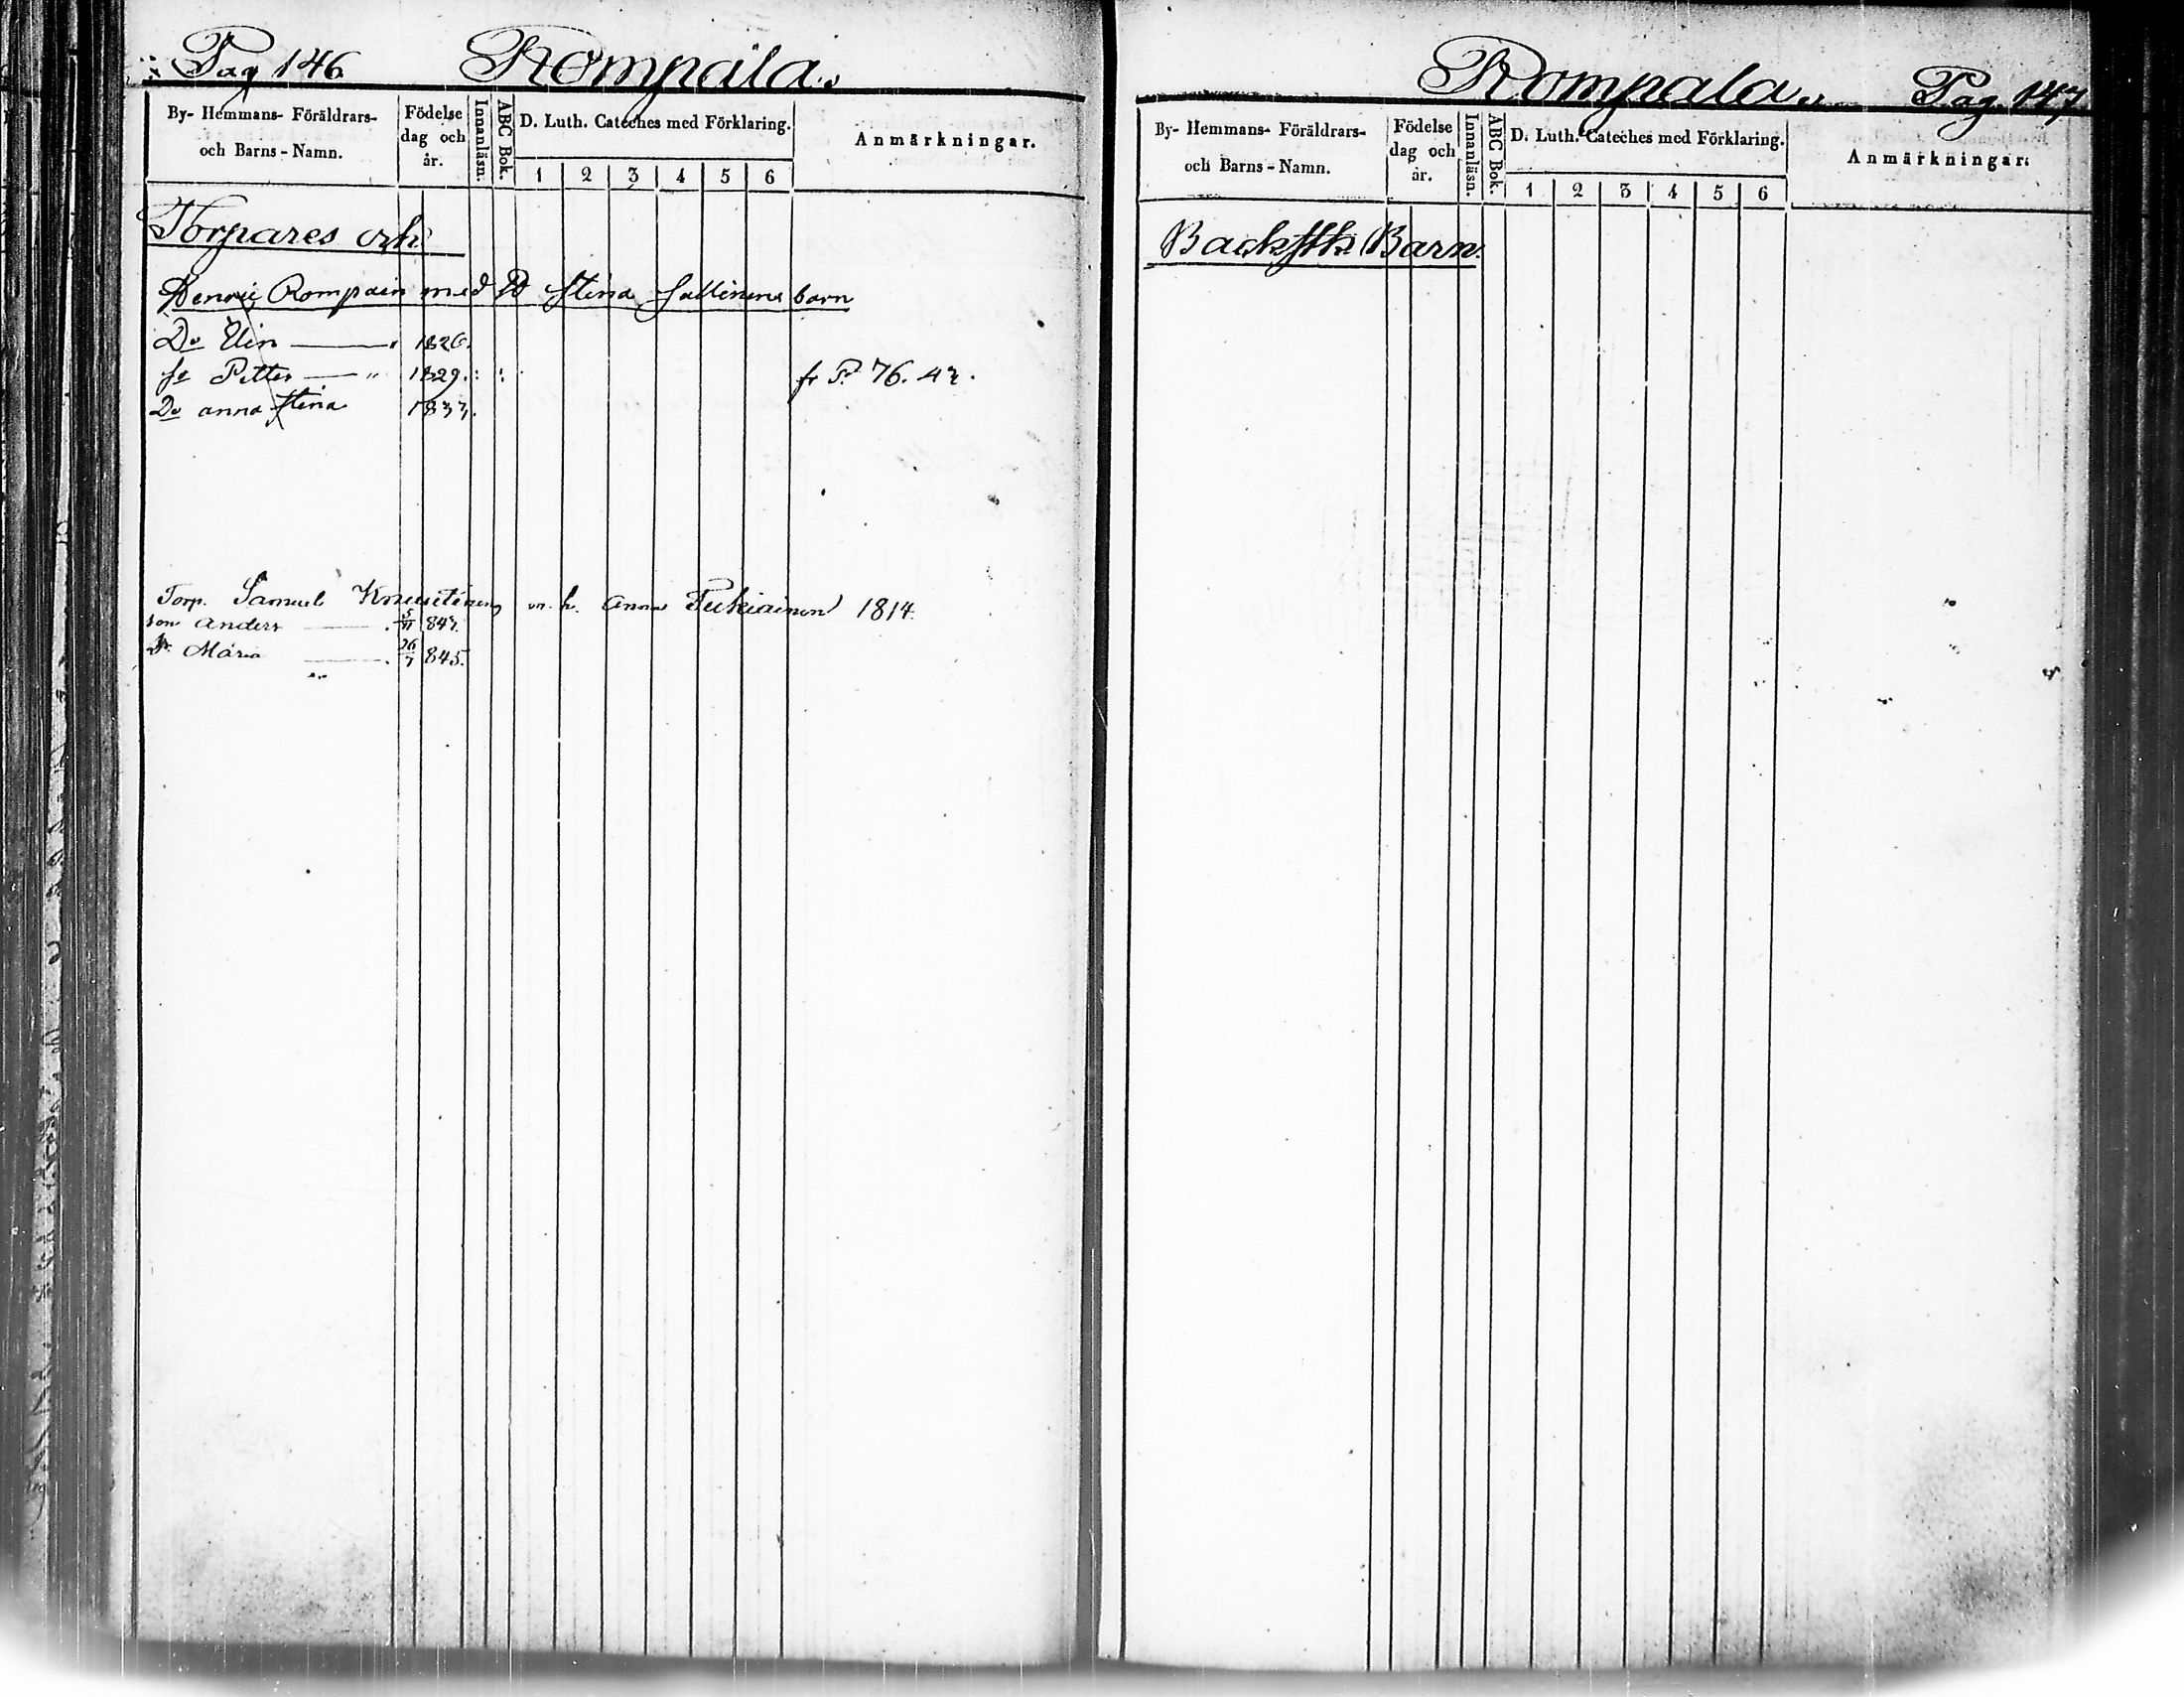 Pag 146 Rompala.
By- Hemmans- Föräldrars- och Barns-Namn.
Födelse dag och år.
Innanläsn.
ABC Bok.
D. Luth. Cateches med Förklaring.
1 2 3 4 5 6
Anmärkningar.
Torpares och
Henric Rompain med stina Sallinens barn
Dr Elin 1826.
Petter 1829. fr P. 76. 42.
Dr anna stina 1837.
Torp. Samuel Knuutinen m. h. Anna Pukiainen 1814.
son Anders 5/11 842.
Dr Maria 26/7 845.
Rompala. Pag 147
By- Hemmans- Föräldrars- och Barns-Namn.
Födelse dag och år.
Innanläsn.
ABC Bok.
D. Luth. Cateches med Förklaring.
1 2 3 4 5 6
Anmärkningar.
Backstk Barn.